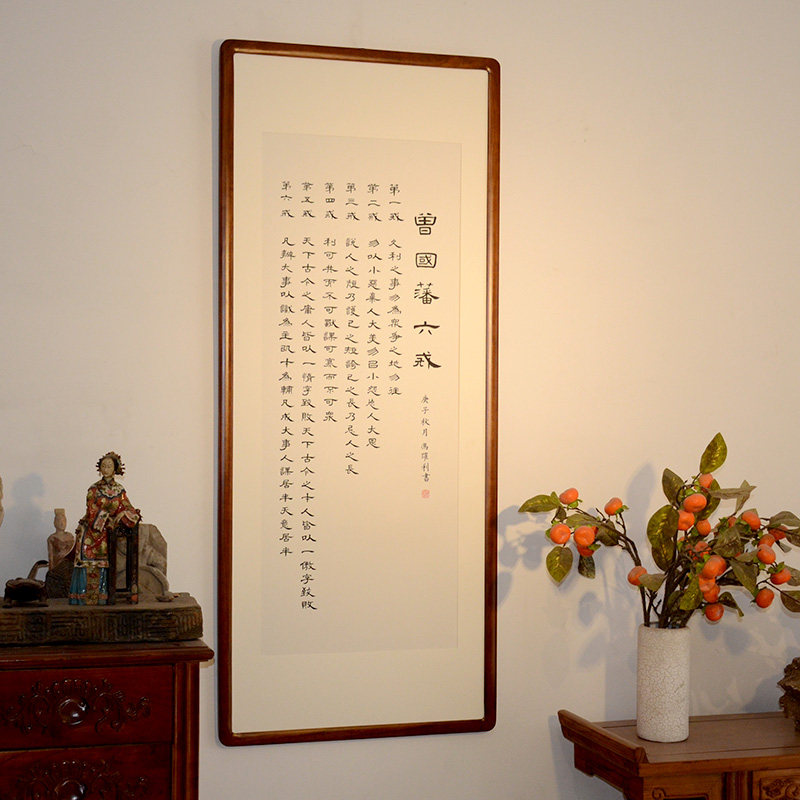 曾國藩六戒
庚子秋月 馮 利書
第一戒 久利之事勿為眾爭之地勿往
第二戒 勿以小惡棄人大美勿以小怨忘人大恩
第三戒 說人之短乃護己之短誇己之長乃忌人之長
第四戒 利可共而不可獨謀可寡而不可眾
第五戒 天下古今之庸人皆以一惰字致敗天下古今之才人皆以一傲字致敗
第六戒 凡辦大事以識為主以才為輔凡成大事人謀居半天意居半